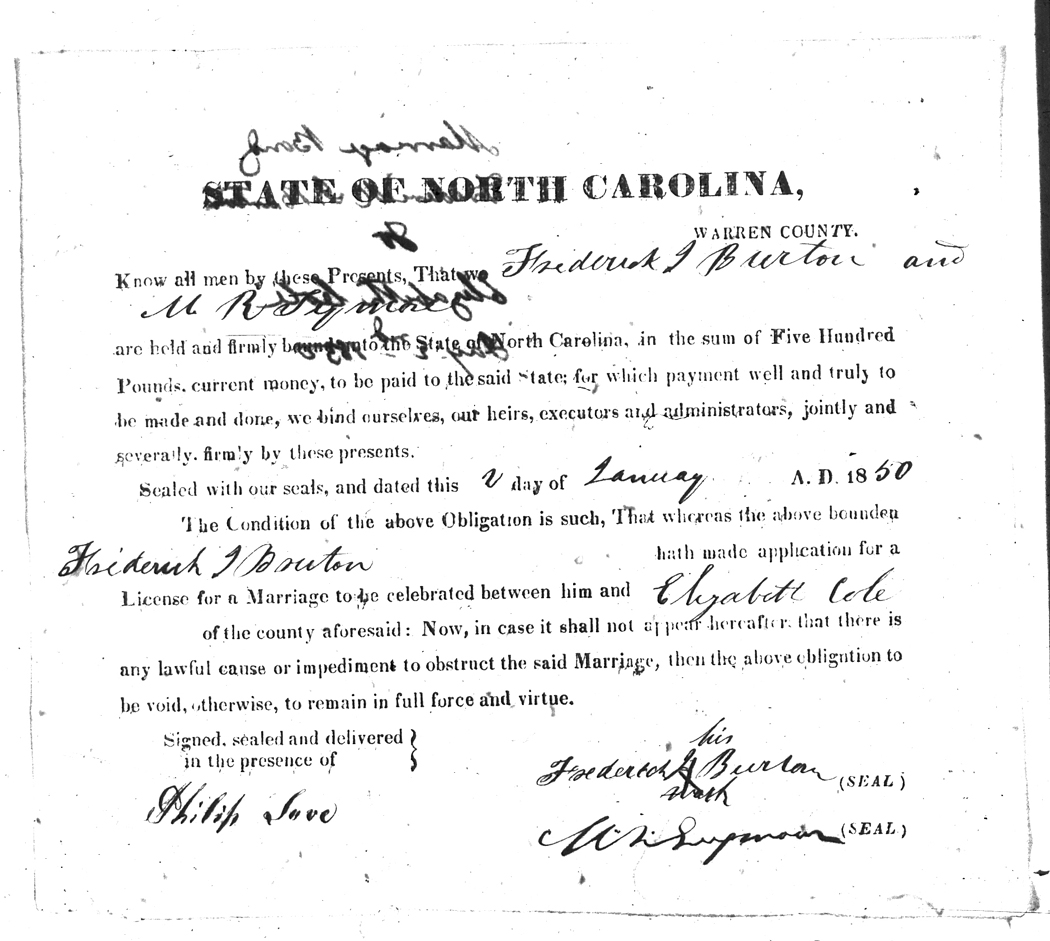 Marriage Bond
STATE OF NORTH CAROLINA,
WARREN COUNTY.
to
Know all men by these Presents, That we Frederick J Burton and
M R Seymore
Elizabeth Cole
are held and firmly bound unto the State of North Carolina, in the sum of Five Hundred
Pounds, current money, to be paid to the said State; for which payment well and truly to
be made and done, we bind ourselves, our heirs, executors and administrators, jointly and
severally, firmly by these presents.
Sealed with our seals, and dated this 2 day of January A. D. 1850
The Condition of the above Obligation is such, That whereas the above bounden
Frederick J Bruton hath made application for a
License for a Marriage to be celebrated between him and Elizabett Cole
of the county aforesaid: Now, in case it shall not appear hereafter, that there is
any lawful cause or impediment to obstruct the said Marriage, then the above obligation to
be void, otherwise, to remain in full force and virtue.
Signed, sealed and delivered
in the presence of
his
Frederick J Burton (SEAL)
mark
Philip Love
Seymour (SEAL)